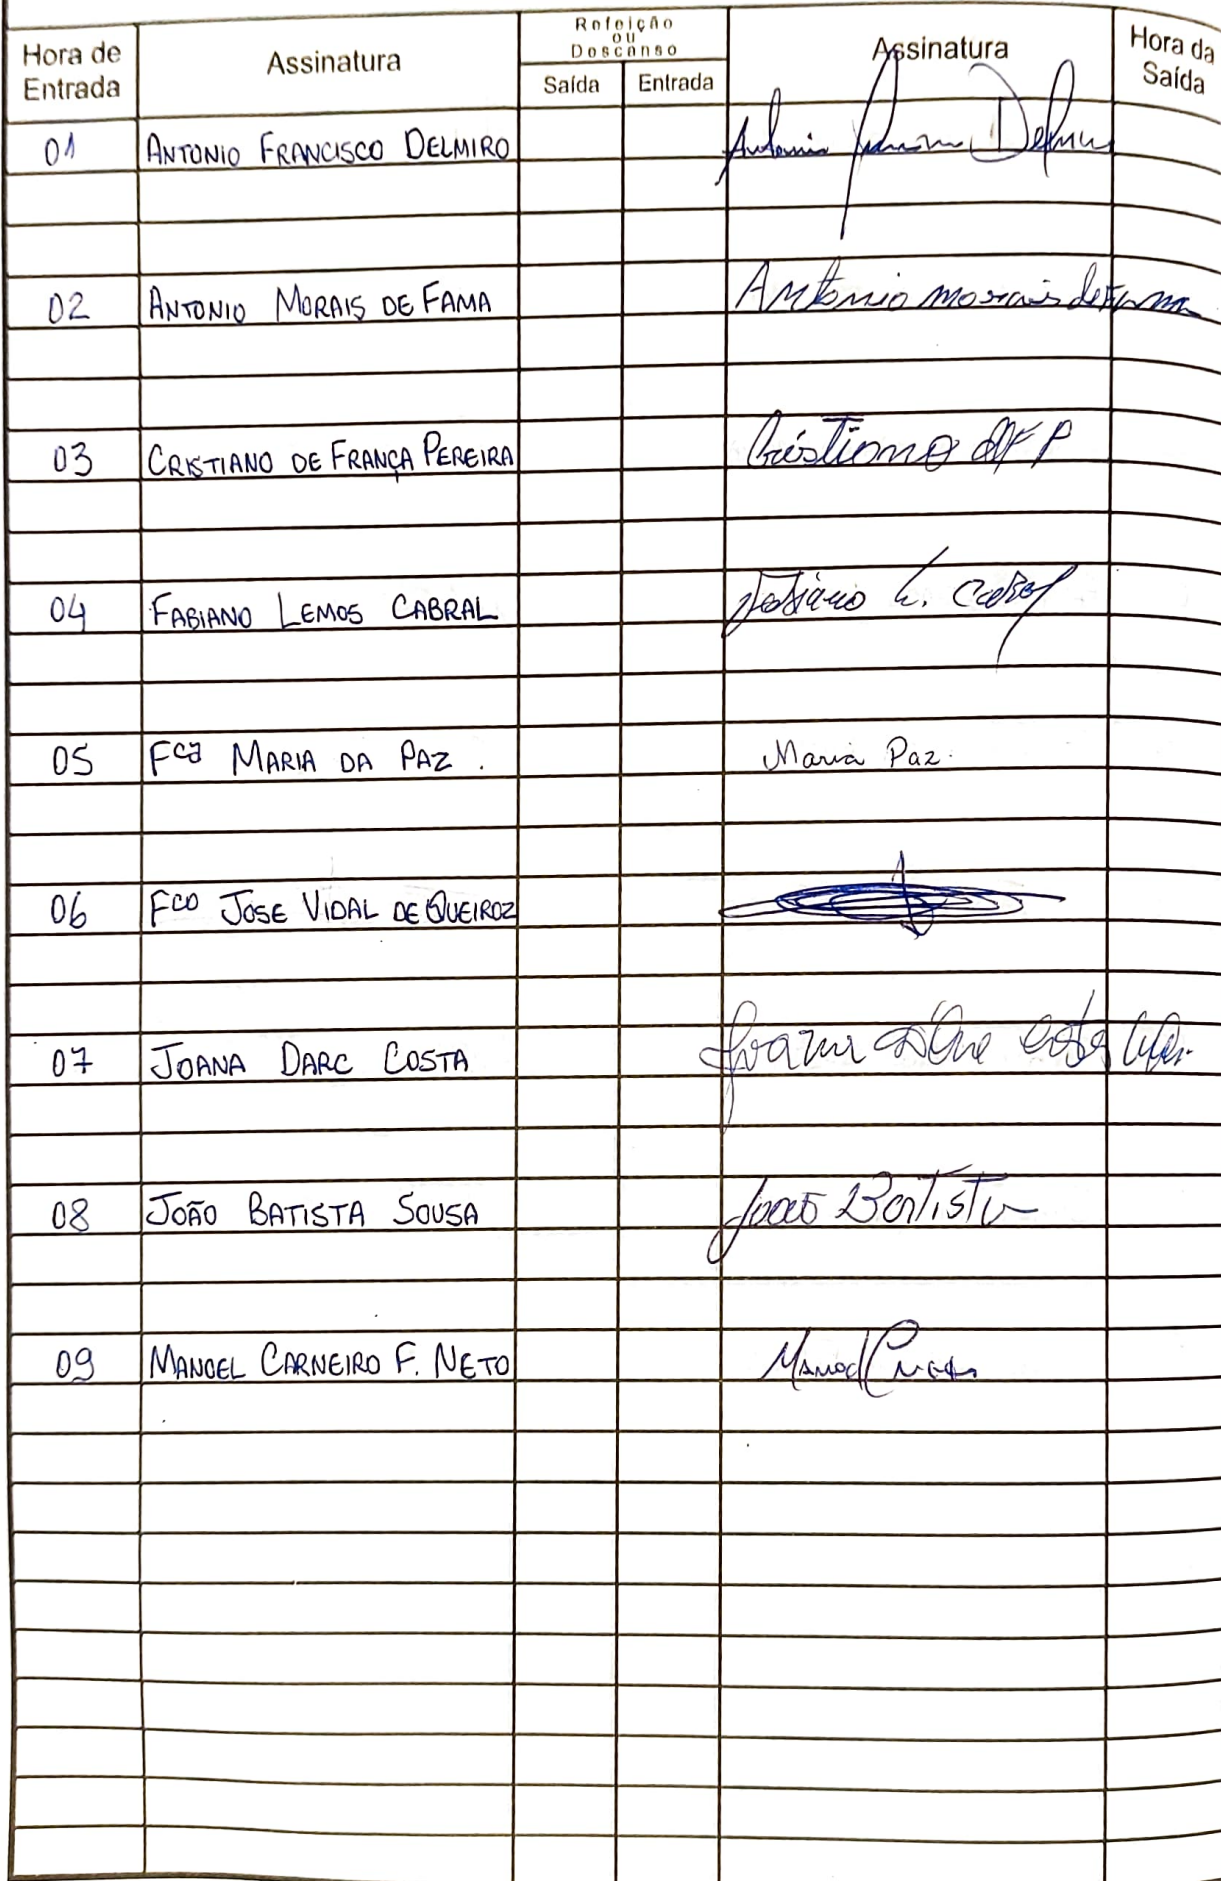 Hora de Entrada Assinatura Refeição ou Descanso Saída Entrada Assinatura Hora da Saída
01 ANTONIO FRANCISCO DELMIRO Antonio Delmiro
02 ANTONIO MORAIS DE FAMA Antonio morais de Fama
03 CRISTIANO DE FRANÇA PEREIRA Cristiano DFP
04 FABIANO LEMOS CABRAL Fabiano L. Cabral
05 Fca MARIA DA PAZ . Maria Paz.
06 Fco JOSE VIDAL DE QUEIROZ
07 JOANA DARC COSTA Joana
08 JOÃO BATISTA SOUSA João Batista
09 MANOEL CARNEIRO F. NETO Manoel